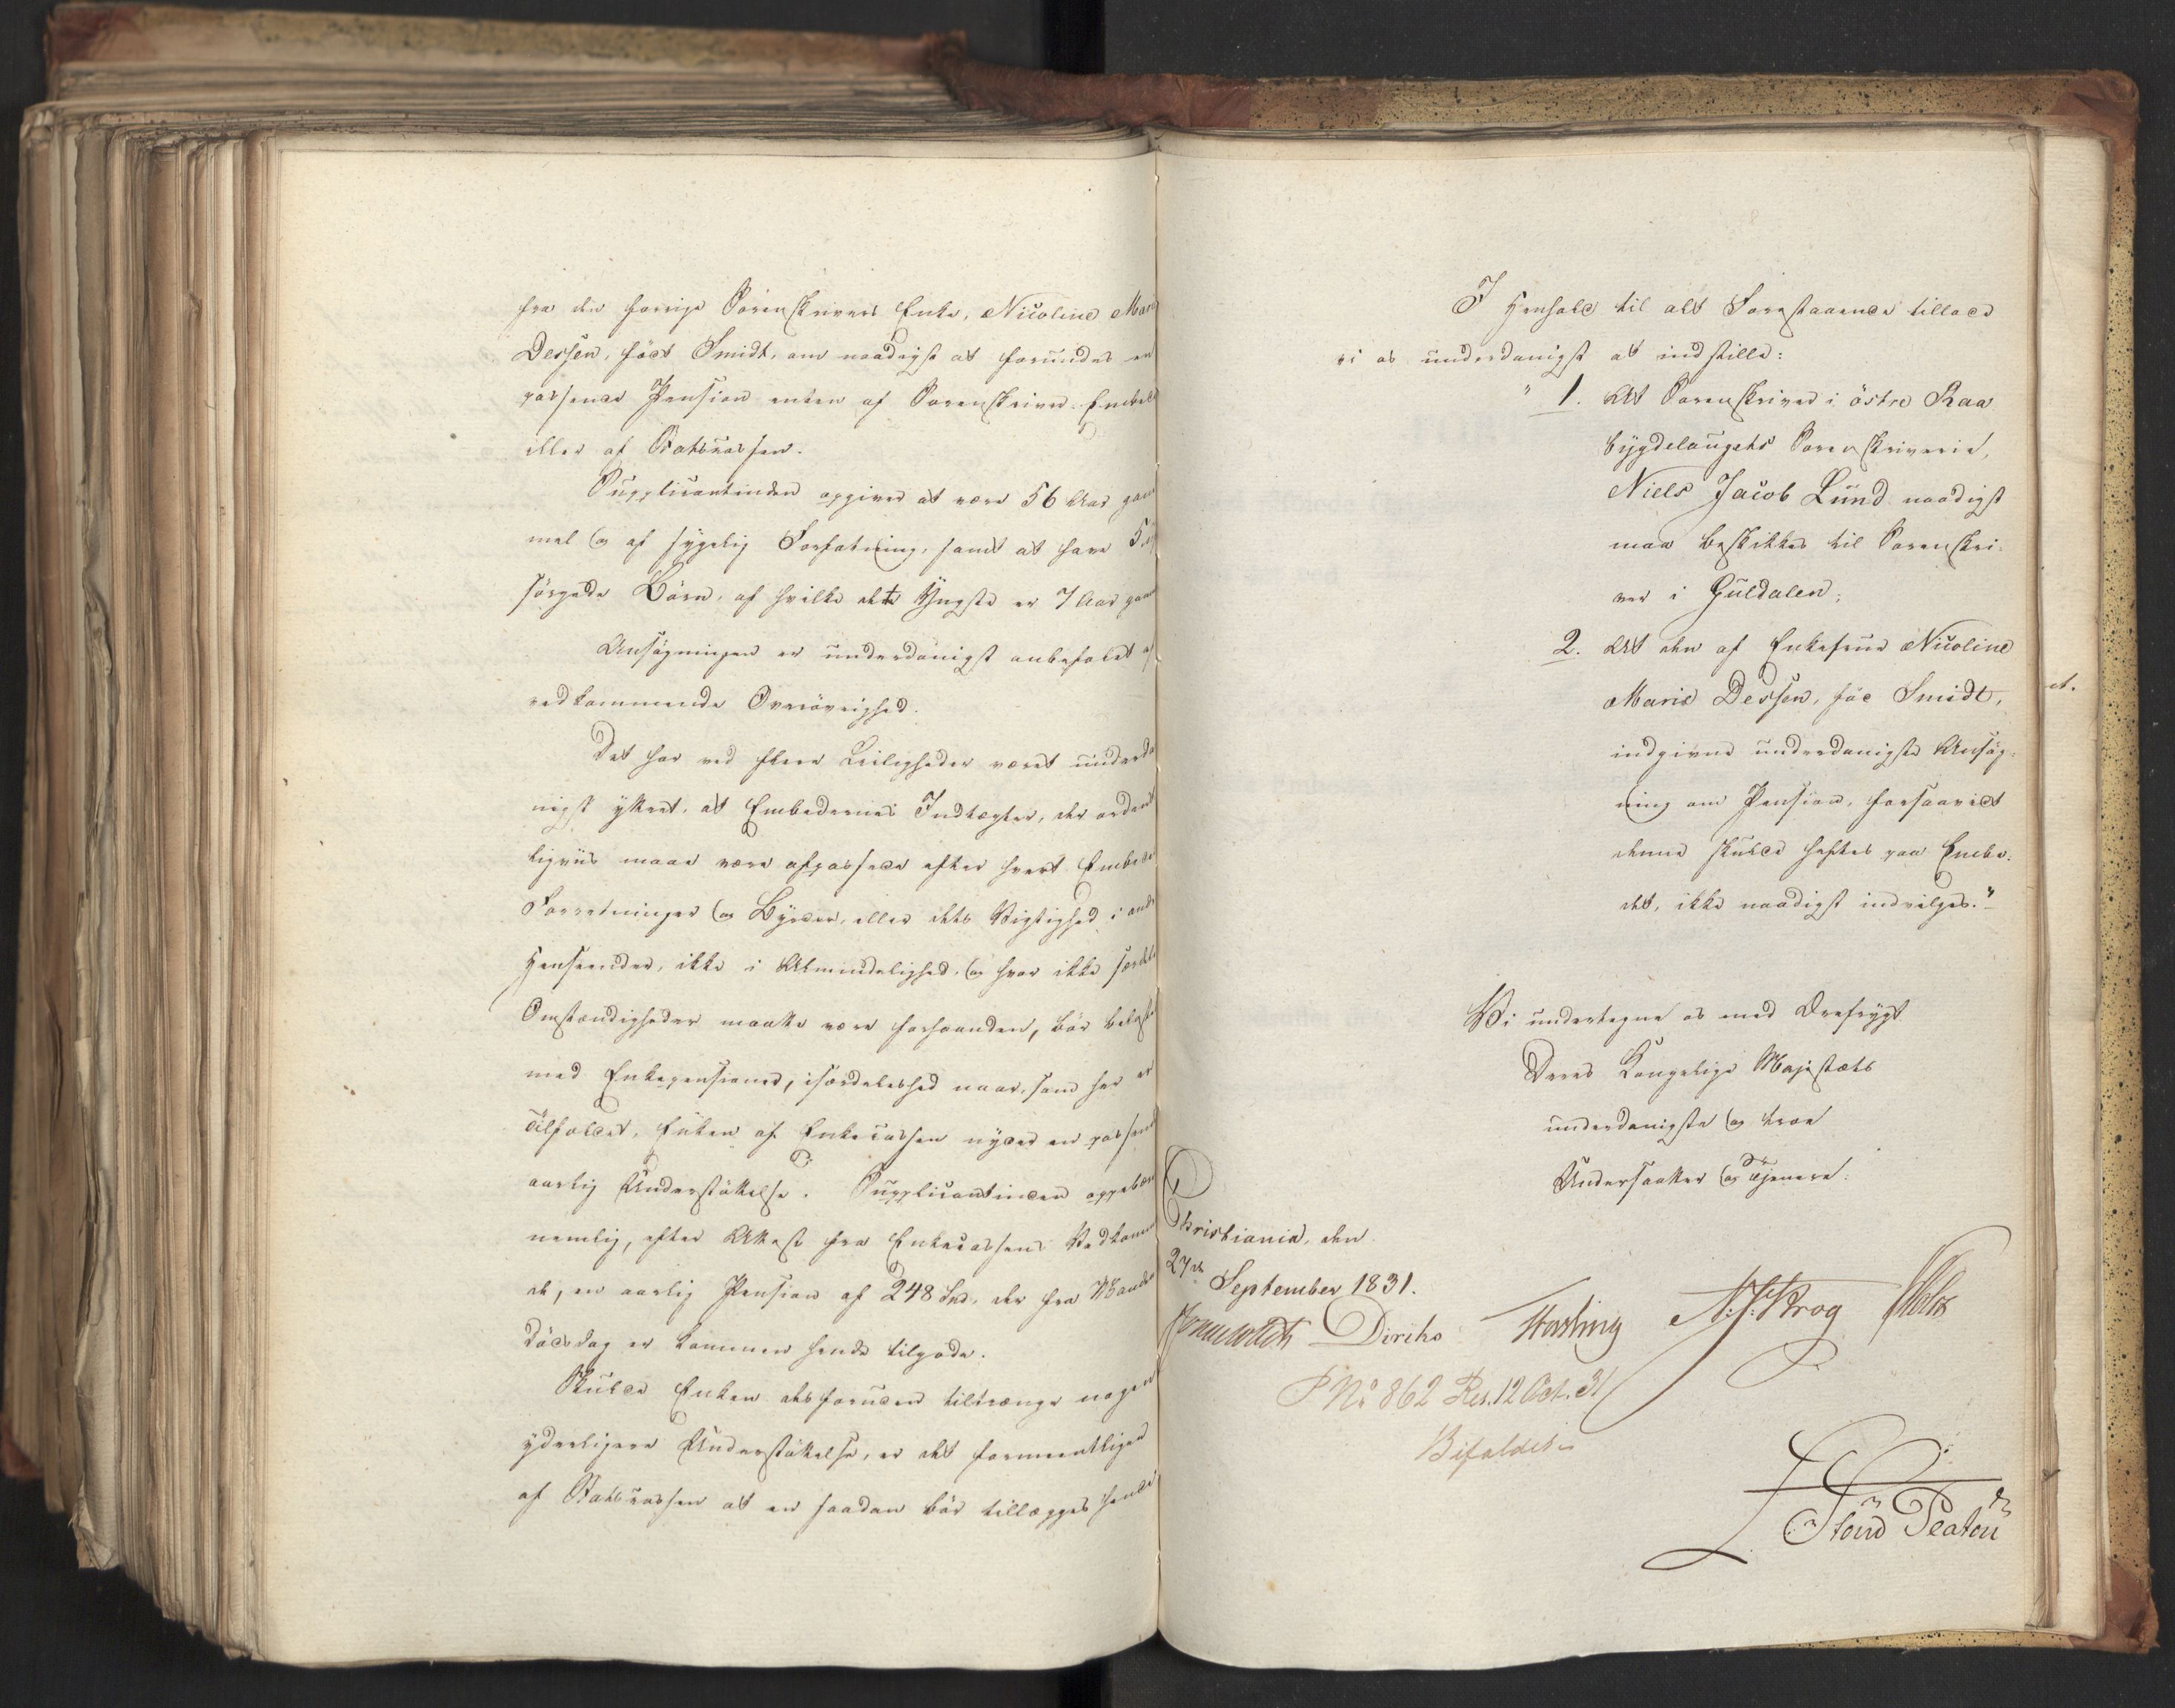 fra den forrige Sorenskrivers Enke, Nicoline Marie
Dessen, født Smidt, om naadigst at forundes en
passende Pension enten af Sorenskriver-Embedet
eller af Statscassen.
Supplicantinden opgiver at være 56 Aar gam
mel og af sygelig Forfatning, samt at have 5 u
sørgede Børn, af hvilke det Yngste er 7 Aar gam
Ansøgningen er underdanigst anbefalet af
vedkommende Overøvrighed.
Det har ved flere Leiligheder været underda
nigst yttret, at Embedernes Indtægter, der ordent
ligviis maae være afpassede efter hvert Embedes
Forretninger og Byrder, eller dets Vigtighed i andre
Henseender, ikke i Almindelighed, og hvor ikke særdeles
Omstændigheder maatte være forhaanden, bør belastes
med Enkepensioner, isærdeleshed naar, som her er
Tilfældet, Enken af Enkecassen nyder en passende
aarlig Understøttelse. Supplicantinden oppebær
nemlig, efter Attest fra Enkecassens Vedkommen
de, en aarlig Pension af 248 Spd., der fra Mandens
Dødsdag er kommen hende tilgode.
Skulde Enken desforuden tiltrænge nogen
yderligere Understøttelse, er det formeentligen
af Statscassen at en saadan bør tillægges hende
I Henhold til alt Forestaaende tillade
vi os underdanigst at indstille:
" 1. At Sorenskriver i östre Raa
bygdelaugets Sorenskriverie,
Niels Jacob Lund naadigst
maa beskikkes til Sorenskri-
ver i Guldalen;
2. At den af Enkefrue Nicoline
Marie Dessen, fød Smidt,
indgivne underdanigste Ansøg-
ning om Pension, forsaavidt
denne skulde heftes paa Embe-
det, ikke naadigst indvilges."
Vi undertegne os med Ærefrygt
Deres Kongelige Majestæts
underdanigste og troe
Undersaatter og Tjenere.
Christiania, den
27de September 1831.
Diriks N:J:Krog Holst
P No 862 Res. 12 Oct. 31
Bifaldes
et.